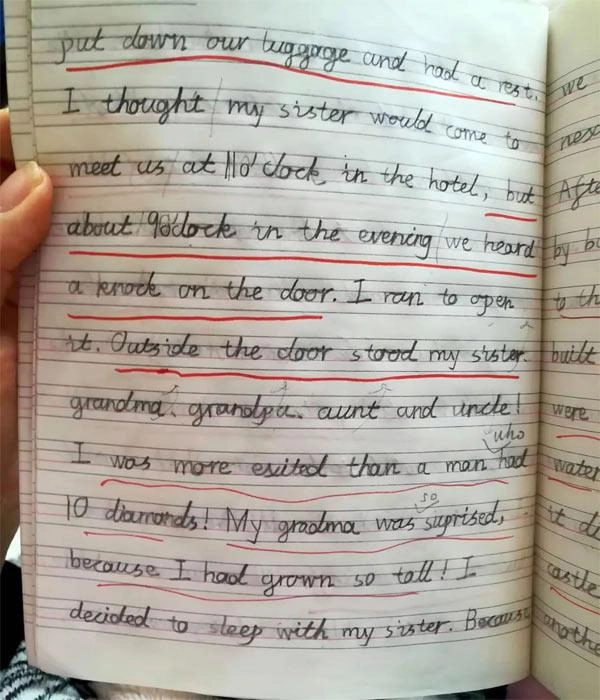 put down our luggage and had a rest.
I thought my sister would come to
meet us at 11o'clock in the hotel, but
about 9o'clock in the evening we heard
a knock on the door. I ran to open
it. Outside the door stood my sister.
grandma、grandpa、aunt and uncle!
who
I was more exited than a man had
so
10 diamonds! My gradma was suprised,
because I had grown so tall! I
decided to sleep with my sister. Because
we
by bu
to th
built
were
water
it di
castle
anothe